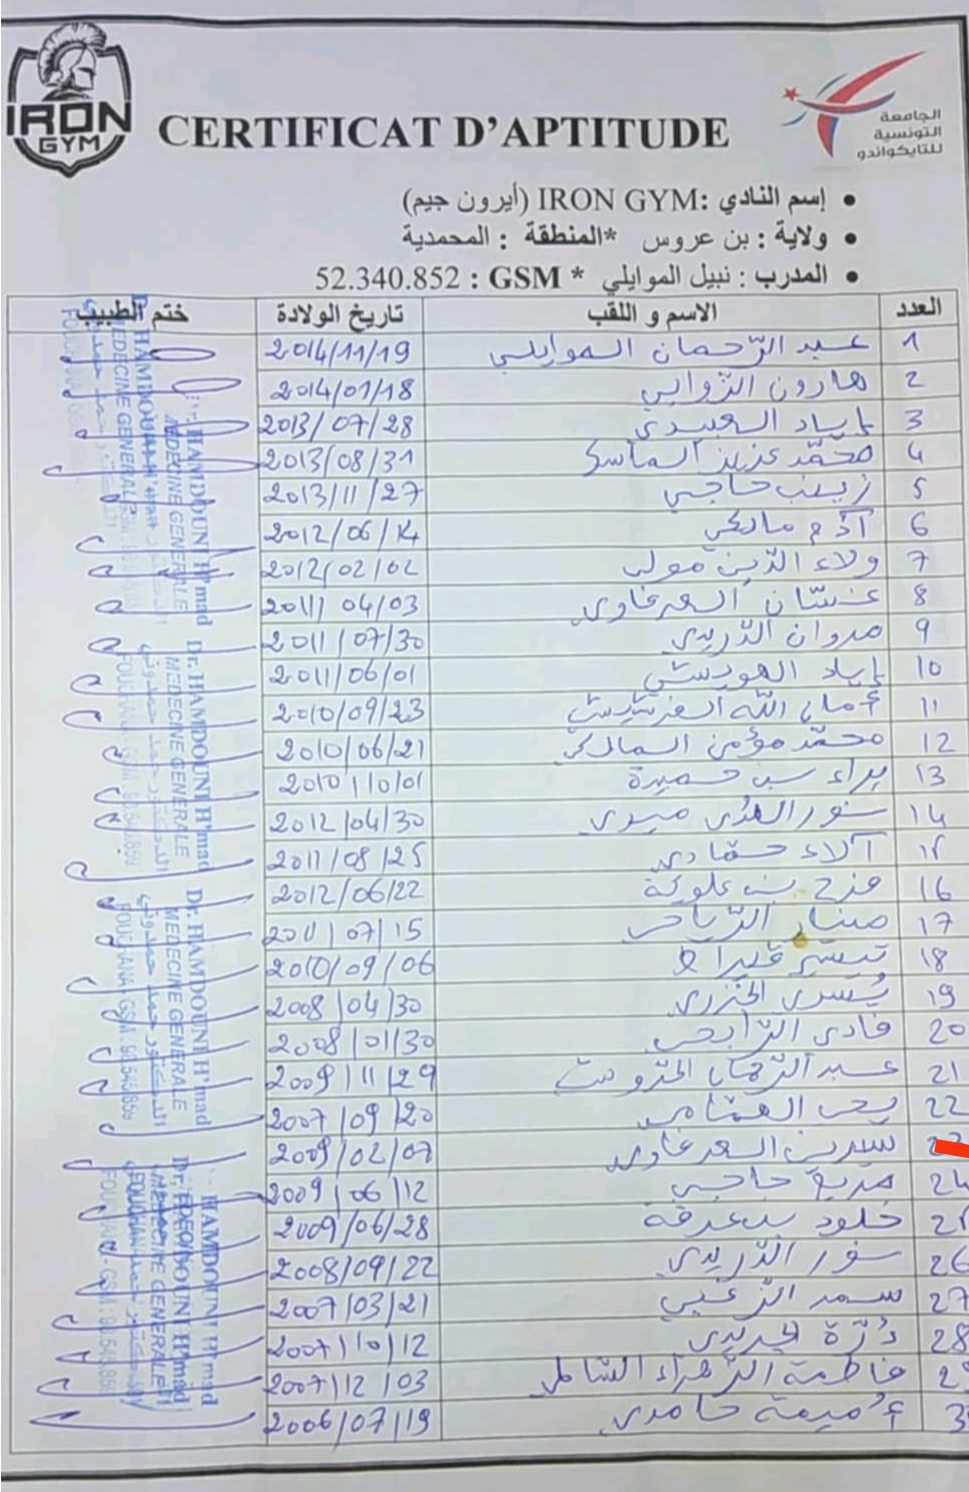 IRON
GYM
CERTIFICAT D'APTITUDE
الجامعة
التونسية
للتايكواندو
• إسم النادي :IRON GYM (أيرون جيم)
• ولاية : بن عروس *المنطقة : المحمدية
• المدرب : نبيل الموايلي * GSM : 52.340.852
العدد الاسم و اللقب تاريخ الولادة ختم الطبيب
1 عبد الرّحمان الموايلي 2014/11/19
2 هارون الزّوابي 2014/01/18
3 إياد العبيدي 2013/07/28
4 محمّد عزيز الماسي 2013/08/31
5 زينب حاجي 2013/11/27
6 آدم مالكي 2012/06/14
7 ولاء الدّين مولى 2012/02/02
8 غسّان السعرغاوي 2011/04/03
9 مروان الدّريدي 2011/07/30
10 إياد الهويشي 2011/06/01
11 أمان اللّه 2010/09/23
12 محمّد مؤمن المالكي 2010/06/21
13 براء بن حميدة 2010/10/01
14 نور الهدى ميدي 2012/04/30
15 آلاء حمّادي 2011/08/25
16 فرح بن علوكة 2012/06/22
17 منار الرّياحي 2011/07/15
18 تيسير قيراط 2010/09/06
19 يُسرى الخزري 2008/04/30
20 فادي الرّابحي 2008/01/30
21 عبد الرّحمان 2009/11/29
22 يحي العثماني 2007/09/20
23 سيرين السعرغاوي 2009/02/07
24 مريم حاجي 2009/06/12
25 خلود بن عرفة 2009/06/28
26 نور الدّريدي 2008/09/22
27 سمر الزّغبي 2007/03/21
28 درّة الجريدي 2007/10/12
29 فاطمة الزّهراء الشّاطر 2007/12/03
3 أميمة حامدي 2006/07/19
Dr. HAMDOUNI H'mad
MEDECINE GENERALE
الدكتور حمد حمدوني
FOUCHANA GSM. 98.546.859
Dr. HAMDOUNI H'mad
MEDECINE GENERALE
الدكتور حمد حمدوني
FOUCHANA GSM. 98.546.859